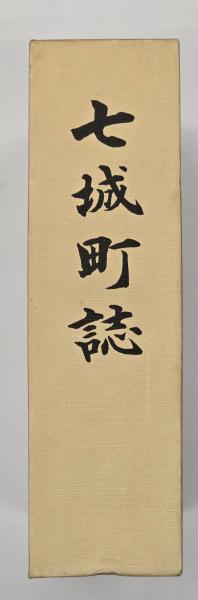 七城町誌